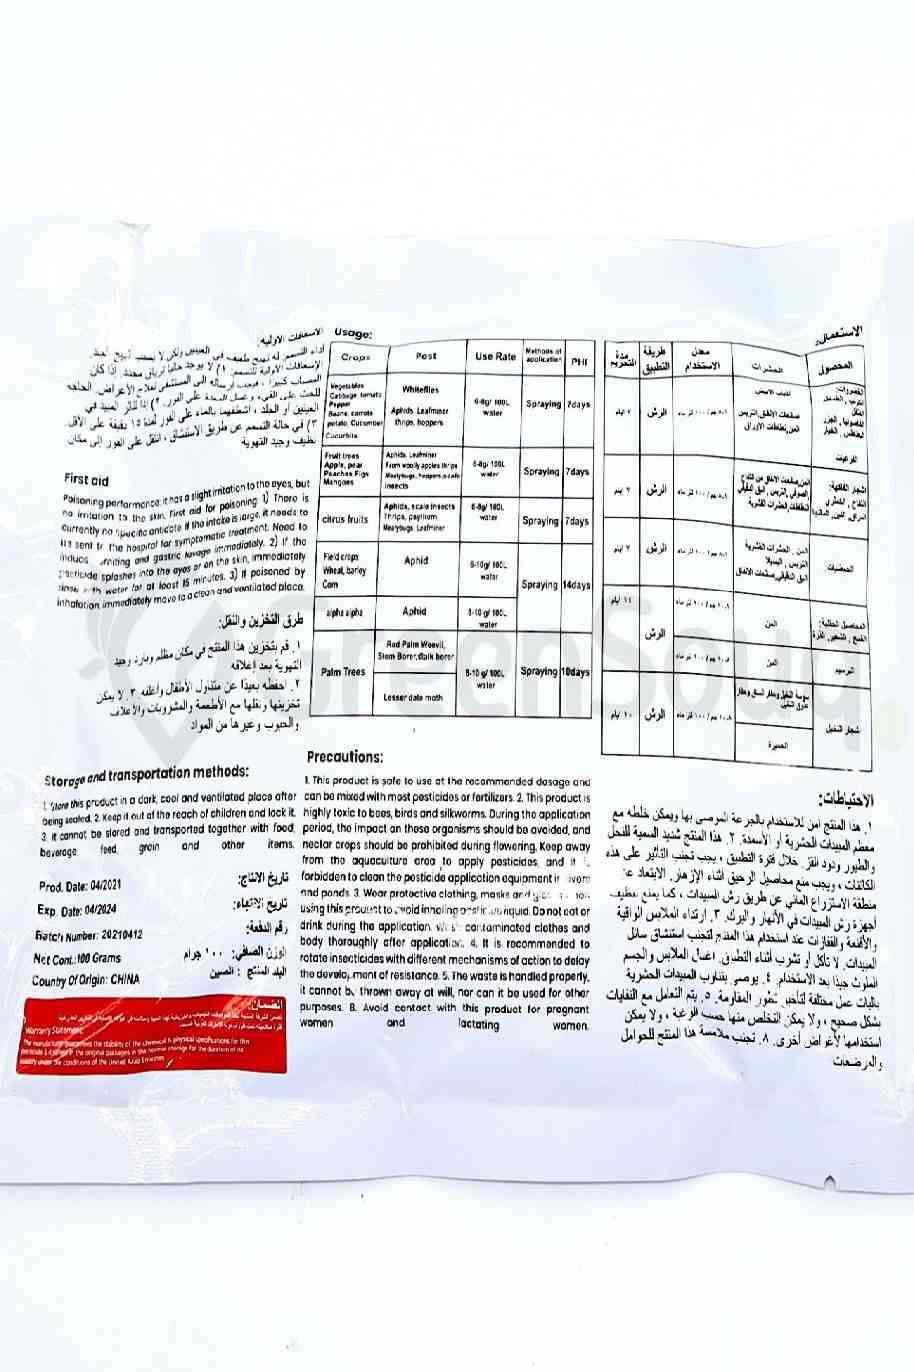 الاسعافات الاولية:
أداء التسمم: له تهيج طفيف في العينين ولكن لا يسبب تهيج الجلد.
الإسعافات الأولية للتسمم: ١) لا يوجد حاليا ترياق محدد. إذا كان
المصاب كبيرا ، فيجب إرساله إلى المستشفى لعلاج الأعراض. الحاجه
للحث على القيء وغسل المعدة على الفور. ٢) إذا تناثر المبيد في
العينين أو الجلد ، اشطفهما بالماء على الفور لمدة ١٥ دقيقة على الأقل.
٣) في حالة التسمم عن طريق الاستنشاق ، انتقل على الفور إلى مكان
نظيف وجيد التهوية
First aid
Poisoning performance: it has a slight irritation to the eyes, but
no irritation to the skin. First aid for poisoning: 1) There is
currently no specific antidote. If the intake is large, it needs to
be sent to the hospital for symptomatic treatment. Need to
induce vomiting and gastric lavage immediately. 2) If the
pesticide splashes into the eyes or on the skin, immediately
rinse with water for at least 15 minutes. 3) If poisoned by
inhalation, immediately move to a clean and ventilated place.
طرق التخزين والنقل:
١. قم بتخزين هذا المنتج في مكان مظلم وبارد وجيد
التهوية بعد إغلاقه
٢. احفظه بعيدًا عن متناول الأطفال وأغلقه. ٣. لا يمكن
تخزينها ونقلها مع الأطعمة والمشروبات والأعلاف
والحبوب وغيرها من المواد
Storage and transportation methods:
1. Store this product in a dark, cool and ventilated place after
being sealed. 2. Keep it out of the reach of children and lock it.
3. It cannot be stored and transported together with food,
beverage feed, grain and other items.
Prod. Date: 04/2021 تاريخ الانتاج:
Exp. Date: 04/2024 تاريخ الانتهاء:
Batch Number: 20210412 رقم الدفعة:
Net Cont.: 100 Grams الوزن الصافي: ١٠٠ جرام
Country Of Origin: CHINA البلد المنتج : الصين
الضمان:
Warranty Statement:
The manufacturer guarantees the stability of the chemical & physical specifications for this
pesticide & in the original packages in the normal storage for the duration of its
validity under the conditions of the United Arab Emirates
Usage:
Crops Pest Use Rate Methods of application PHI
Vegetables Cabbage, tomato Pepper Beans, carrots potato, Cucumber Cucurbits Whiteflies Aphids, Leafminer thrips, hoppers 6-8g/ 100L water Spraying 7days
Fruit trees Apple, pear Peaches Figs Mangoes Aphids, Leafminer From woolly apples thrips Mealybugs, hoppers, scale insects 6-8g/ 100L water Spraying 7days
citrus fruits Aphids, scale insects Thrips, psyllium, Mealybugs, Leafminer 6-8g/ 100L water Spraying 7days
Field crops Wheat, barley Corn Aphid 8-10g/ 100L water Spraying 14days
alpha alpha Aphid 8-10 g/ 100L water
Palm Trees Red Palm Weevil, Stem Borer, stalk borer Lesser date moth 8-10 g/ 100L water Spraying 10days
Precautions:
1. This product is safe to use at the recommended dosage and
can be mixed with most pesticides or fertilizers. 2. This product is
highly toxic to bees, birds and silkworms. During the application
period, the impact on those organisms should be avoided, and
nectar crops should be prohibited during flowering. Keep away
from the aquaculture area to apply pesticides, and it is
forbidden to clean the pesticide application equipment in rivers
and ponds. 3. Wear protective clothing, masks and gloves when
using this product to avoid inhaling pesticide liquid. Do not eat or
drink during the application. Wash contaminated clothes and
body thoroughly after application. 4. It is recommended to
rotate insecticides with different mechanisms of action to delay
the development of resistance. 5. The waste is handled properly,
it cannot be thrown away at will, nor can it be used for other
purposes. 8. Avoid contact with this product for pregnant
women and lactating women.
الاستعمال:
المحصول الحشرات معدل الاستخدام طريقة التطبيق مدة التحريم
الخضروات: الذباب الابيض الرش ٧ ايام
القرعيات
اشجار الفاكهة: الرش ٧ ايام
الحمضيات المن , الحشرات القشرية الرش ٧ ايام
المحاصيل الحقلية: القمح , الشعير , الذرة المن الرش ١٤ ايام
البرسيم المن
اشجار النخيل الحميرة الرش ١٠ ايام
الاحتياطات:
١. هذا المنتج آمن للاستخدام بالجرعة الموصى بها ويمكن خلطه مع
معظم المبيدات الحشرية أو الأسمدة. ٢. هذا المنتج شديد السمية للنحل
والطيور ودود القز. خلال فترة التطبيق ، يجب تجنب التأثير على هذه
الكائنات ، ويجب منع محاصيل الرحيق أثناء الإزهار. الابتعاد عن
منطقة الاستزراع المائي عن طريق رش المبيدات ، كما يمنع تنظيف
أجهزة رش المبيدات في الأنهار والبرك. ٣. ارتداء الملابس الواقية
والأقنعة والقفازات عند استخدام هذا المنتج لتجنب استنشاق سائل
المبيدات. لا تأكل أو تشرب أثناء التطبيق. اغسل الملابس والجسم
الملوث جيدًا بعد الاستخدام. ٤. يوصى بتناوب المبيدات الحشرية
بآليات عمل مختلفة لتأخير تطور المقاومة. ٥. يتم التعامل مع النفايات
بشكل صحيح ، ولا يمكن التخلص منها حسب الرغبة ، ولا يمكن
استخدامها لأغراض أخرى. ٨. تجنب ملامسة هذا المنتج للحوامل
والمرضعات
GreenSouq